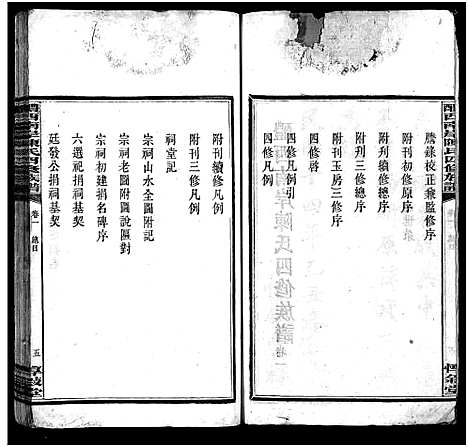 謄錄校正兼監修序
附刊初修原序
附刊續修總序
附刊三修總序
附刊玉房三修序
四修啓
四修凡例
附刊續修凡例
附刊三修凡例
祠堂記
宗祠山水全圖附記
宗祠老圖附圖說區對
宗祠初建捐名碑序
六選祝捐祠基契
廷發公捐祠基契
陳氏四修族譜
卷一
總目
五
陳氏四修族譜
卷一